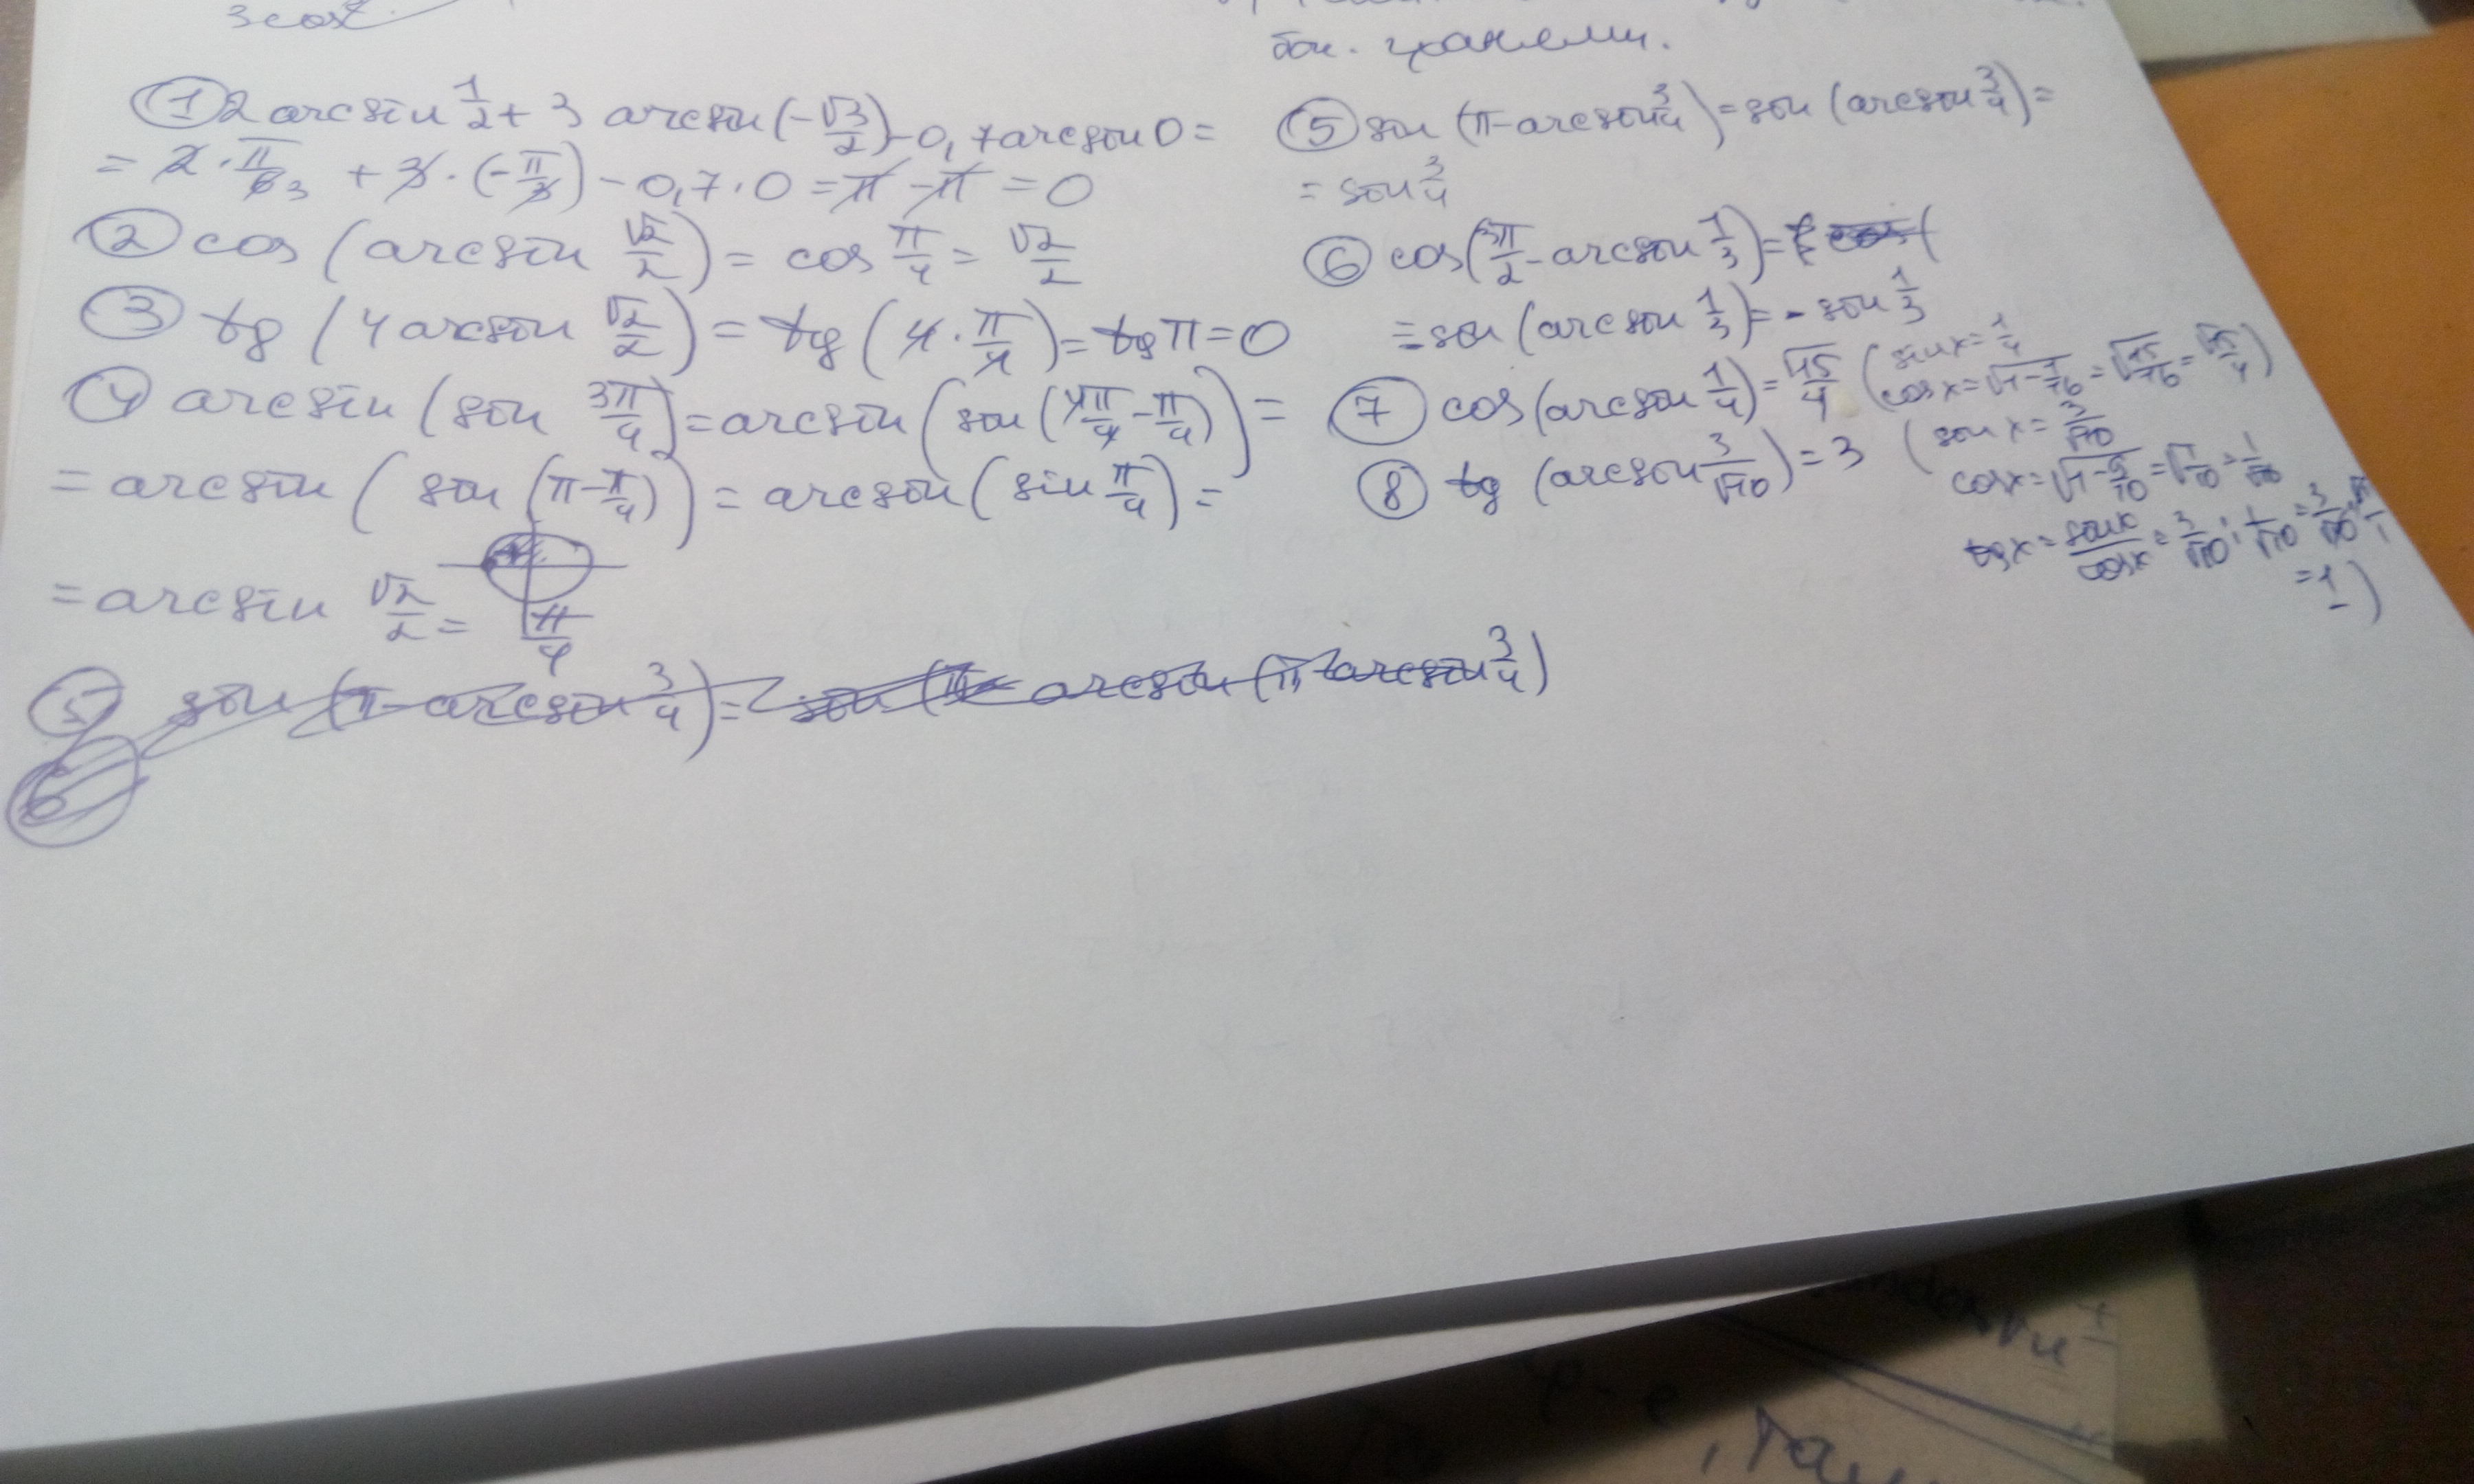 3cosx
бок. гранями.
① 2 arcsin 1/2 + 3 arcsin (-√3/2) - 0,7 arcsin 0 =
= 2 · π/6 3 + 3 · (-π/3) - 0,7 · 0 = π - π = 0
② cos (arcsin √2/2) = cos π/4 = √2/2
③ tg (4 arcsin √2/2) = tg (4 · π/4) = tg π = 0
④ arcsin (sin 3π/4) = arcsin (sin (4π/4 - π/4)) =
= arcsin (sin (π - π/4)) = arcsin (sin π/4) =
= arcsin √2/2 = π/4
⑤ sin (π - arcsin 3/4) = sin (π - arcsin (π - arcsin 3/4)
⑥
⑤ sin (π - arcsin 3/4) = sin (arcsin 3/4) =
= sin 3/4
⑥ cos (3π/2 - arcsin 1/3) = cos (
= - sin (arcsin 1/3) = - sin 1/3
⑦ cos (arcsin 1/4) = √15/4 (sin x = 1/4
cos x = √1 - 1/16 = √15/16 = √15/4)
⑧ tg (arcsin 3/√10) = 3 (sin x = 3/√10
cos x = √1 - 9/10 = √1/10 = 1/√10
tg x = sin x/cos x = 3/√10 : 1/√10 = 3/√10 · √10/1
= 1)